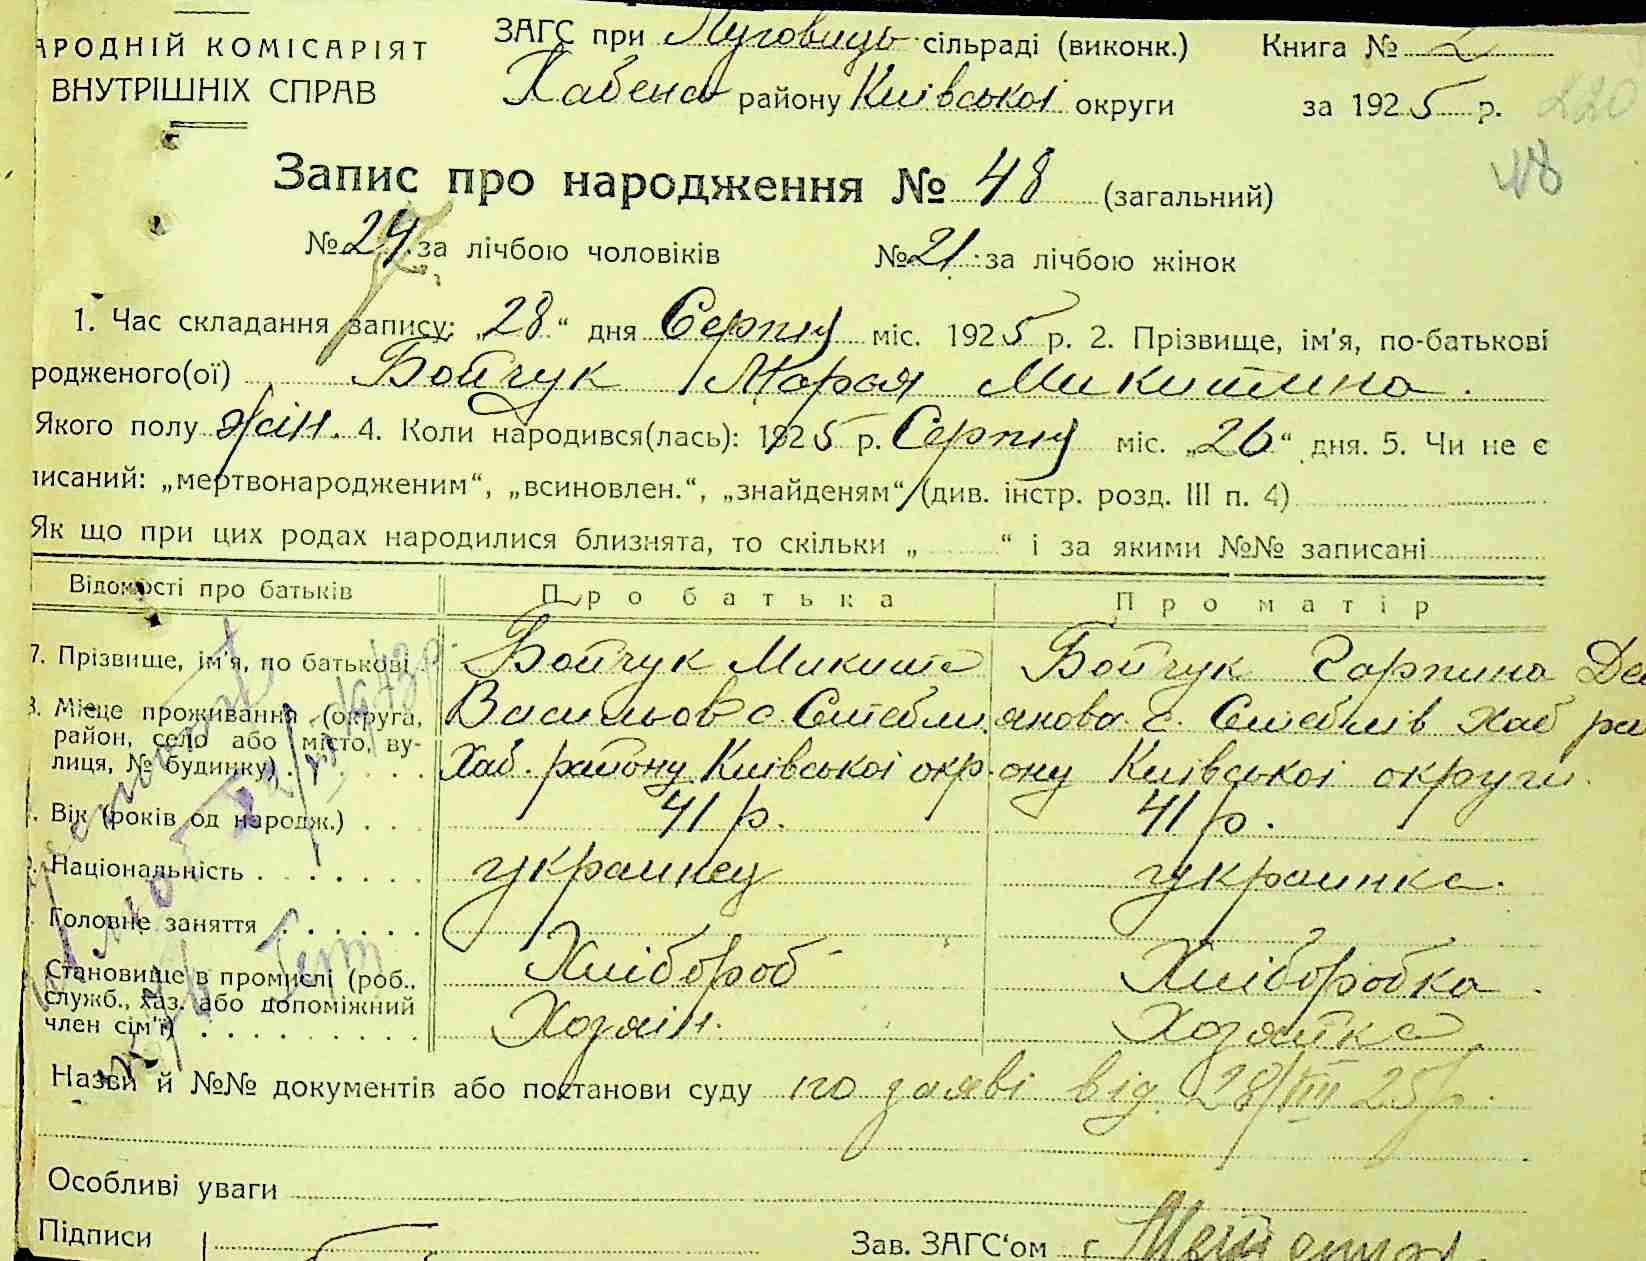 АРОДНІЙ КОМІСАРІЯТ
ВНУТРІШНІХ СПРАВ
ЗАГС при Луговиць сільраді (виконк.)
Хабенс району Київської округи
Книга № 2
за 1925 р.
220
48
Запис про народження № 48 (загальний)
№ 24 за лічбою чоловіків № 21 за лічбою жінок
1. Час складання запису: „28“ дня Серпня міс. 1925 р. 2. Прізвище, ім'я, по-батькові
родженого(ої) Бойчук Марія Микитина.
Якого полу жін. 4. Коли народився(лась): 1925 р. Серпня міс. „26“ дня. 5. Чи не є
писаний: „мертвонародженим“, „всиновлен.“, „знайденям“ (див. інстр. розд. III п. 4)
Як що при цих родах народилися близнята, то скільки „ “ і за якими №№ записані
Відомості про батьків Про батька Про матір
7. Прізвище, ім'я, по батькові Бойчук Микита Бойчук Гарпина Дем
8. Місце проживання (округа, Васильов с. Стебли янова с. Стеблів Хаб рай
район, село або місто, ву-
лиця, № будинку) Хаб. району Київської окр. ону Київської округи.
Вік (років од народж.) 41 р. 41 р.
Національність украинец украинка.
Головне заняття
Хлібороб Хліборобка
Становище в промислі (роб.,
служб., хаз. або допоміжний
член сім'ї) Хозяін. Хозяйка
Назви й №№ документів або постанови суду по заяві від 28/VIII 25 р.
Особливі уваги
Підписи Зав. ЗАГС'ом